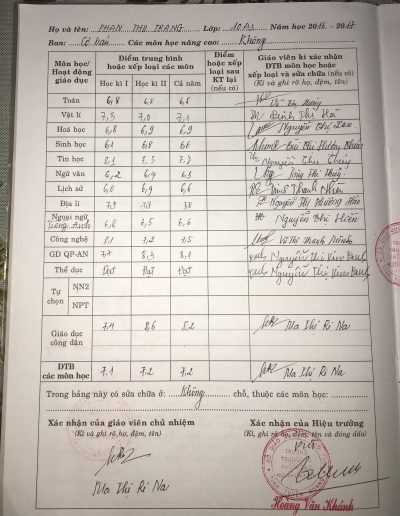 Họ và tên: PHAN THU TRANG Lớp: 10A3 Năm học 2016 - 2017
Ban: Cơ bản Các môn học nâng cao: Không
Môn học/ Hoạt động giáo dục Điểm trung bình hoặc xếp loại các môn Điểm hoặc xếp loại sau KT lại (nếu có) Giáo viên kí xác nhận ĐTB môn học hoặc xếp loại và sửa chữa (nếu có) (Kí và ghi rõ họ, đệm, tên)
Học kì I Học kì II Cả năm
Toán 6,8 6,8 6,8
Vật lí 7,5 7,0 7,1 Đinh Thị Hà
Hoá học 6,8 6,9 6,9 Nguyễn Thị
Sinh học 6,1 6,8 6,6 Bùi Thị Hương
Tin học 8,1 7,5 7,7 Nguyễn Thu Thủy
Ngữ văn 6,2 6,9 6,7 Tống Thị
Lịch sử 6,0 6,9 6,6 Thanh
Địa lí 7,9 7,8 7,8 Nguyễn Thị Phương
Ngoại ngữ Tiếng Anh 6,8 6,5 6,6 Nguyễn Thị Hiền
Công nghệ 8,1 7,2 7,5 Võ Thị Thanh
GD QP-AN 7,7 8,3 8,1 Nguyễn Thị Kim
Thể dục Đạt Đạt Đạt Nguyễn Thị Kim
Tự chọn NN2
NPT
Giáo dục công dân 7,4 8,6 8,2 Ma Thị Ri Na
ĐTB các môn học 7,1 7,2 7,2 Ma Thị Ri Na
Trong bảng này có sửa chữa ở: Không chỗ, thuộc các môn học:
Xác nhận của giáo viên chủ nhiệm Xác nhận của Hiệu trưởng
(Kí và ghi rõ họ, đệm, tên) (Kí, ghi rõ họ, đệm, tên và đóng dấu)
Ma Thị Ri Na
Hoàng Văn Khánh